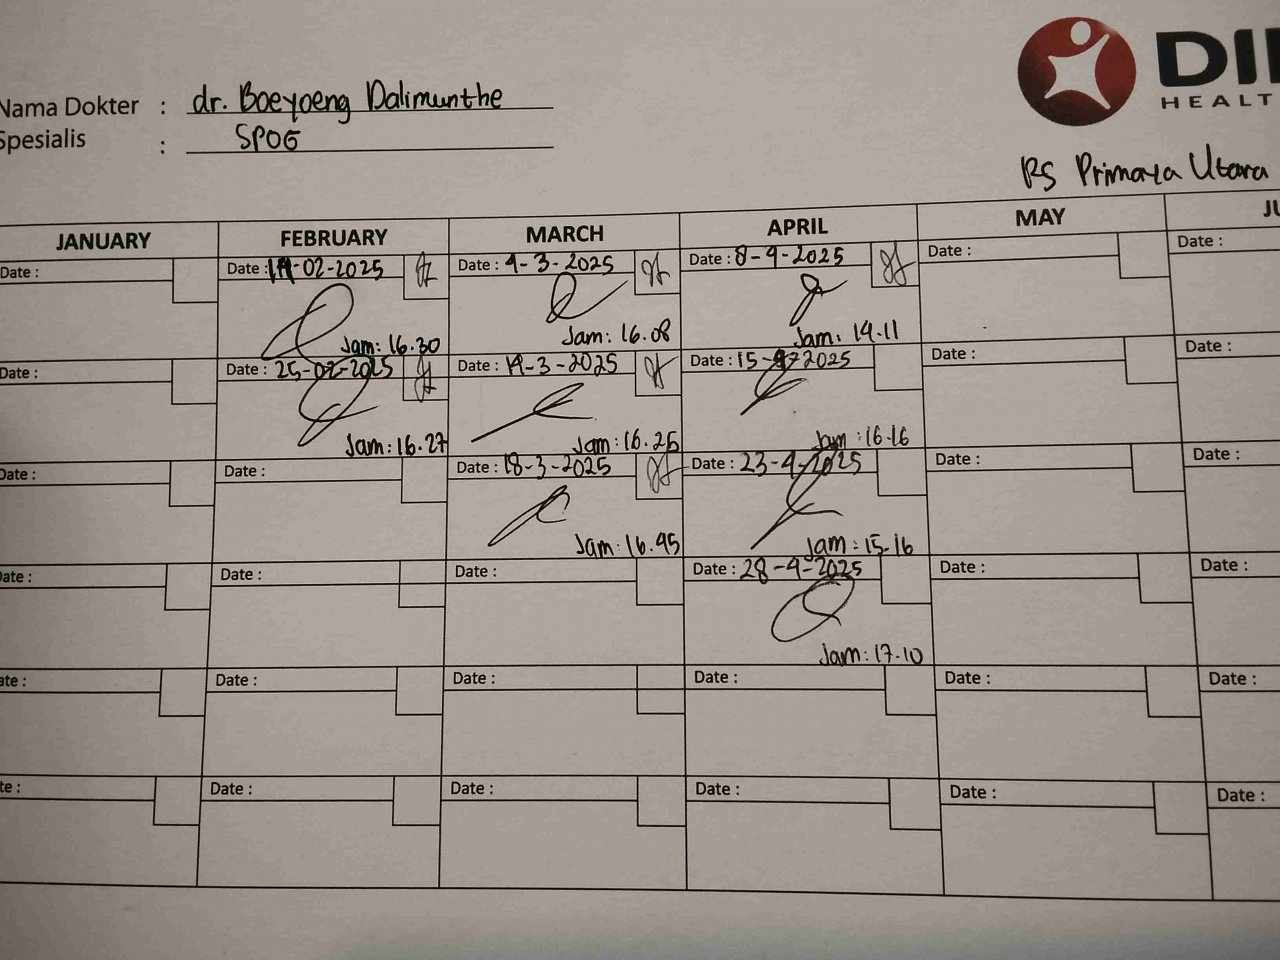 Nama Dokter : dr. Boeyoeng Dalimunthe
Spesialis : SPOG
DI
HEALT
RS Primaya Utara
JANUARY FEBRUARY MARCH APRIL MAY JU
Date : Date : -02-2025 Date : 4-3-2025 Date : 8-4-2025 Date : Date :
Jam: 16.30 Jam: 16.08 Jam: 14.11
Date : Date : 25-02-2025 Date : 11-3-2025 Date : 15-4-2025 Date : Date :
Jam: 16.27 Jam: 16.25 Jam: 16.16
Date : Date : Date : 18-3-2025 Date : 23-4-2025 Date : Date :
Jam: 16.45 Jam: 15.16
Date : Date : Date : Date : 28-4-2025 Date : Date :
Jam: 17.10
ate : Date : Date : Date : Date : Date :
te : Date : Date : Date : Date : Date :